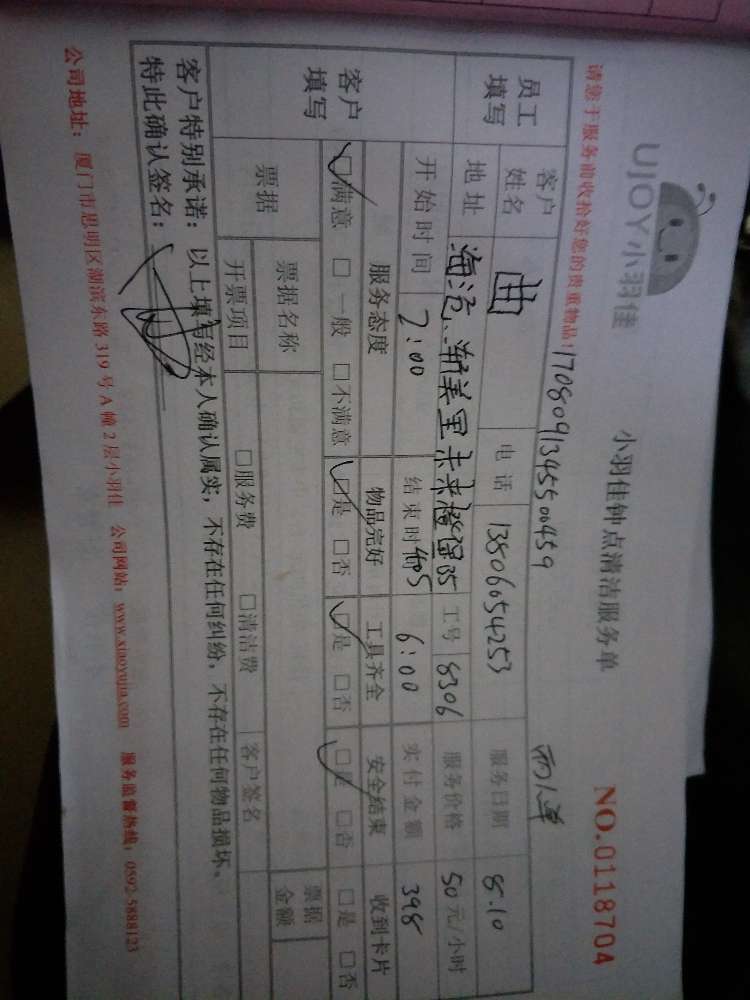 UJOY小羽佳
小羽佳钟点清洁服务单
NO.0118704
请您于服务前收拾好您的贵重物品!
1708091345500459
员工填写
客户姓名
曲
电话
13506054253
服务日期
8.10
地址
海沧
未来橙堡
工号
8306
服务价格
50元/小时
开始时间
2:00
结束时
6:00
实付金额
398
客户填写
服务态度
物品完好
工具齐全
安全结束
收到卡片
□满意 □一般 □不满意
□是 □否
□是 □否
□是 □否
□是 □否
票据
票据名称
票据金额
开票项目
□服务费 □清洁费
客户签名
客户特别承诺:以上填写经本人确认属实,不存在任何纠纷,不存在任何物品损坏。
特此确认签名:
公司地址:厦门市思明区湖滨东路319号A幢2层小羽佳 公司网站:www.xiaoyujia.com 服务监督热线:0592-5888123